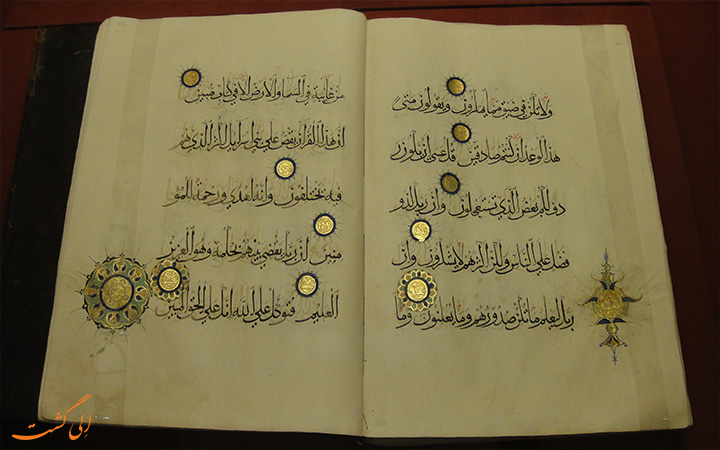 ولا تكن في ضيق مما يمكرون ويقولون متى
هذا الوعد ان كنتم صادقين قل عسى ان يكون ر
دف لكم بعض الذي تستعجلون وان ربك لذو
فضل على الناس ولكن اكثرهم لا يشكرون وان
ربك ليعلم ما تكن صدورهم وما يعلنون وما
من غايبة في السما والارض الا في كتاب مبين
ان هذا القرآن يقص على بني اسرايل اكثر الذي هم
فيه يختلفون وانه لهدى ورحمة للمؤ
منين ان ربك يقضي بينهم بحكمه وهو العزيز
العليم فتوكل على الله انك على الحق المبين
الی گشت